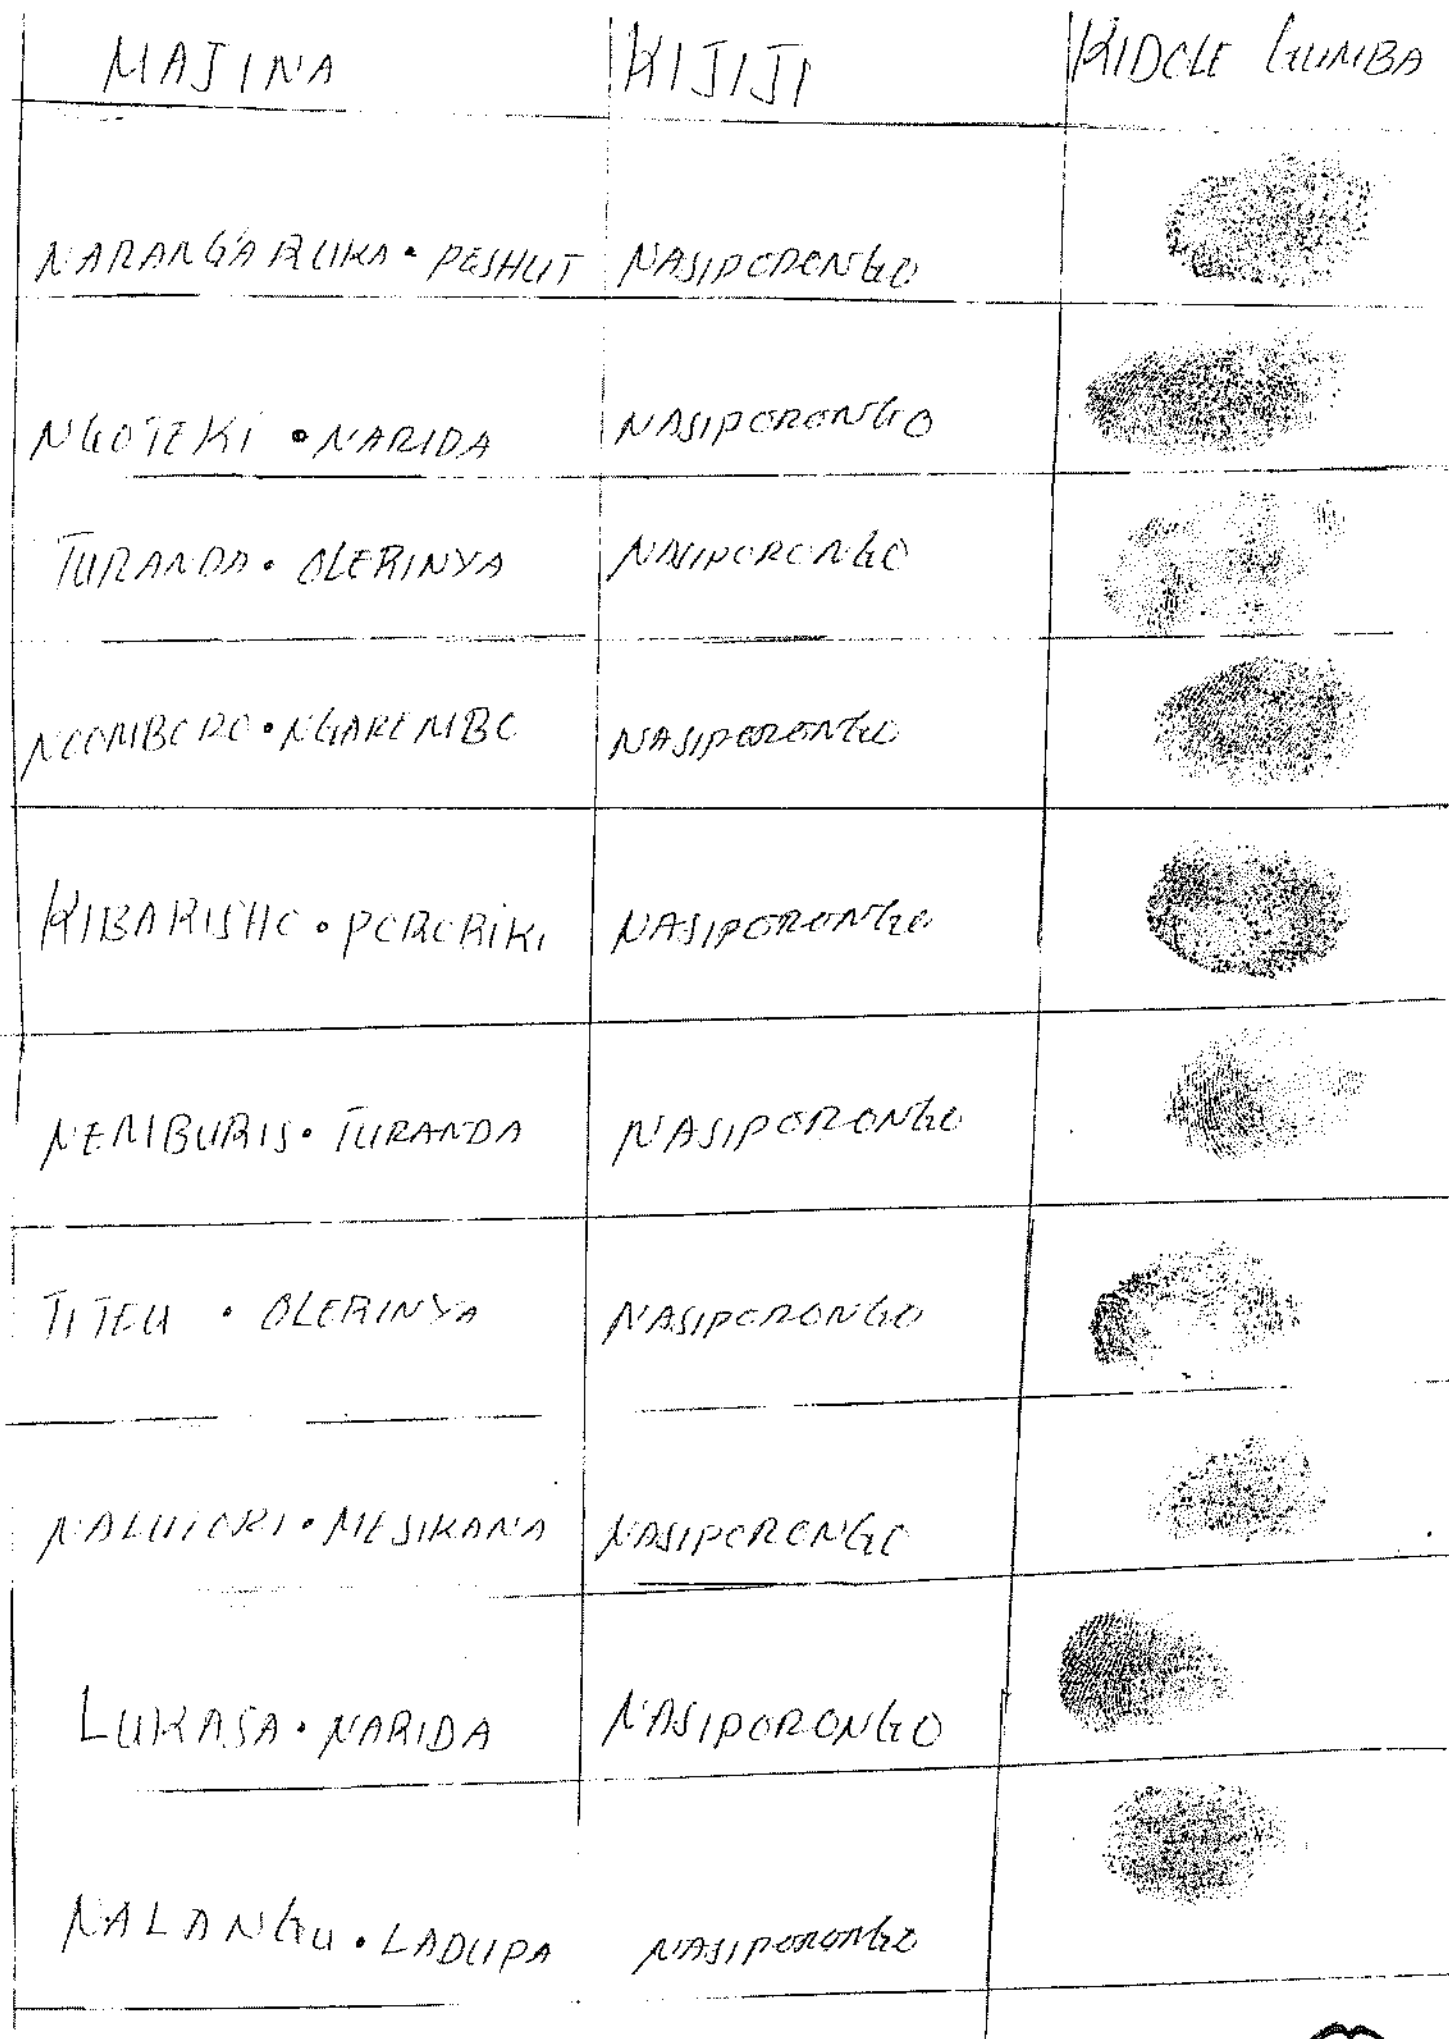 MAJINA KIJIJI KIDOLE GUMBA
NARANG'ARUKA • PESHUT NASIPORONGO
NGOTEKI • NARIDA NASIPORONGO
TURANDA • OLERINYA NASIPORONGO
NGAREMBO NASIPORONGO
KIBARISHO • PORORIKI NASIPORONGO
NEMBURIS • TURANDA NASIPORONGO
TITEU • OLERINYA NASIPORONGO
MESIKANA NASIPORONGO
LUKASA • NARIDA NASIPORONGO
NALANGU • LADUPA NASIPORONGO